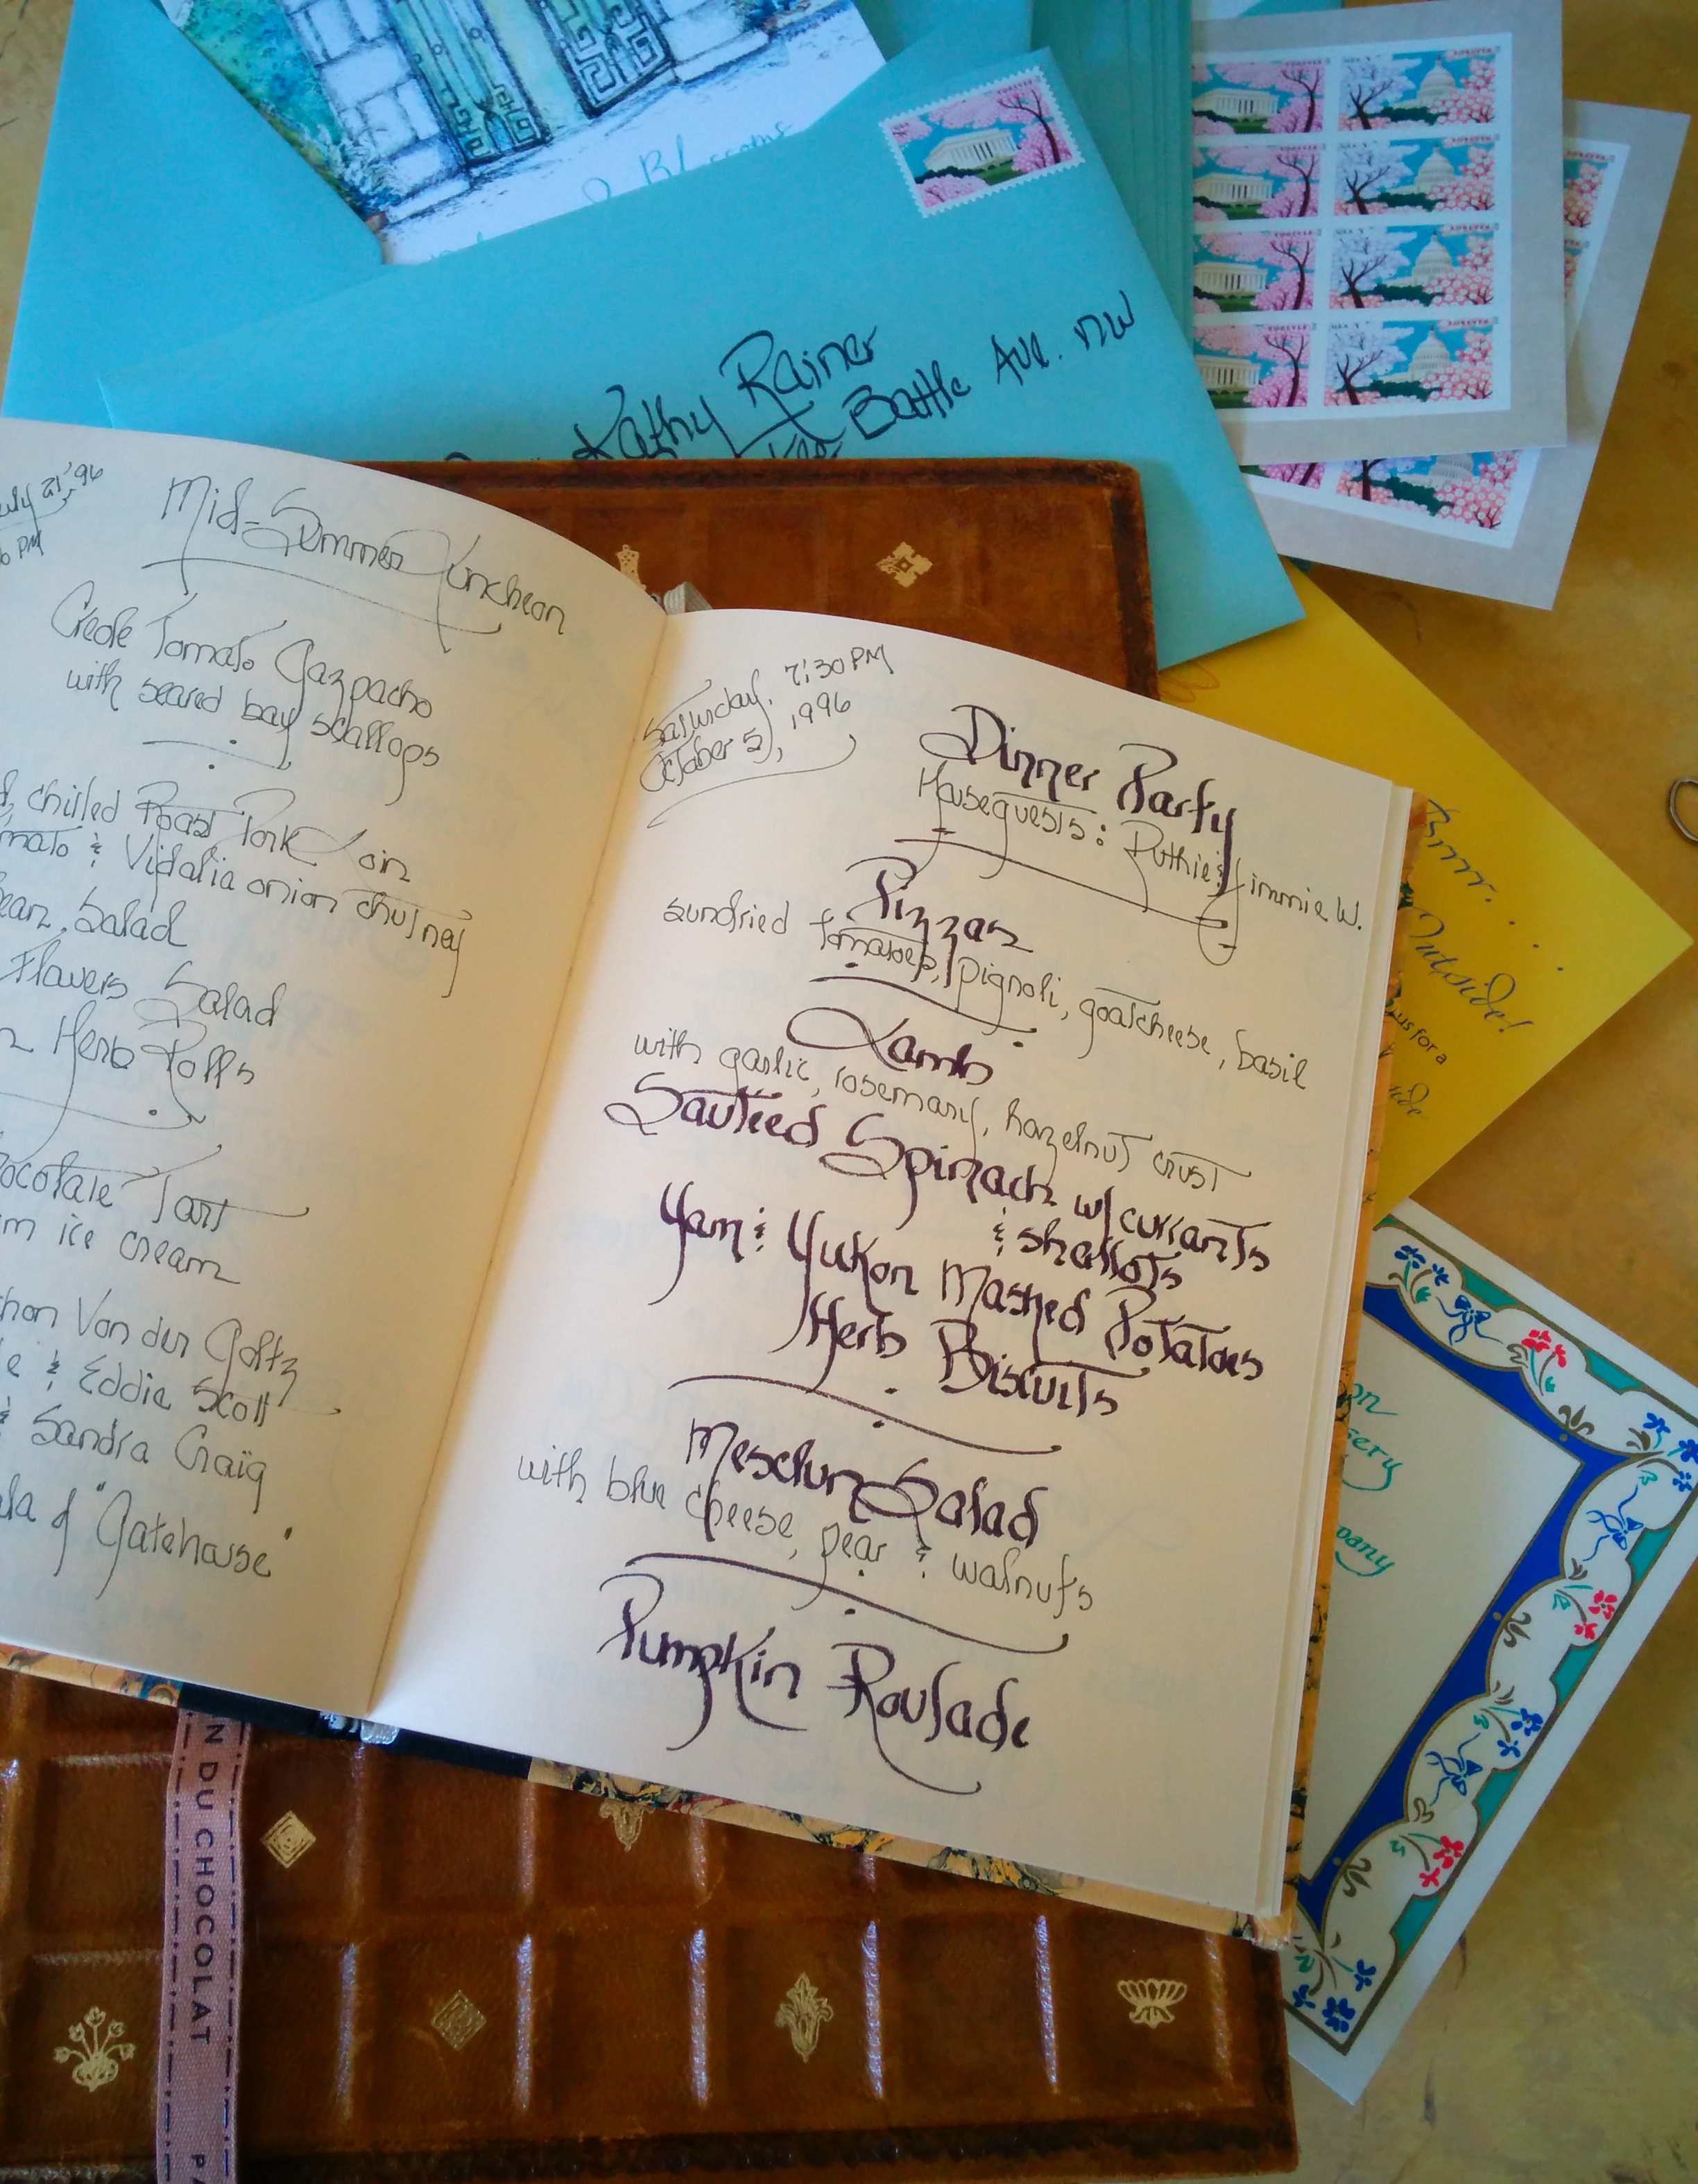 Blossoms
USA
FOREVER
Kathy Rainer
Battle Ave. NW
July 21, '96
PM
Mid-Summer Luncheon
Creole Tomato Gazpacho
with seared bay scallops
chilled Roast Pork Loin
& Vidalia onion chutney
Salad
Flowers Salad
Herb Rolls
Tart
ice cream
Von der Goltz
& Eddie Scott
& Sandra Craig
of "Gatehouse"
Saturday, 7:30 PM
October 5, 1996
Dinner Party
Houseguests: Ruthie & Jimmie W.
Pizzas
sundried tomatoes, pignoli, goatcheese, basil
Lamb
with garlic, rosemary, hazelnut crust
Sauteed Spinach w/ currants
& shallots
Yam & Yukon Mashed Potatoes
Herb Biscuits
Mesclun Salad
with blue cheese, pear & walnuts
Pumpkin Roulade
Brrrr....
Outside!
us for a
N DU CHOCOLAT